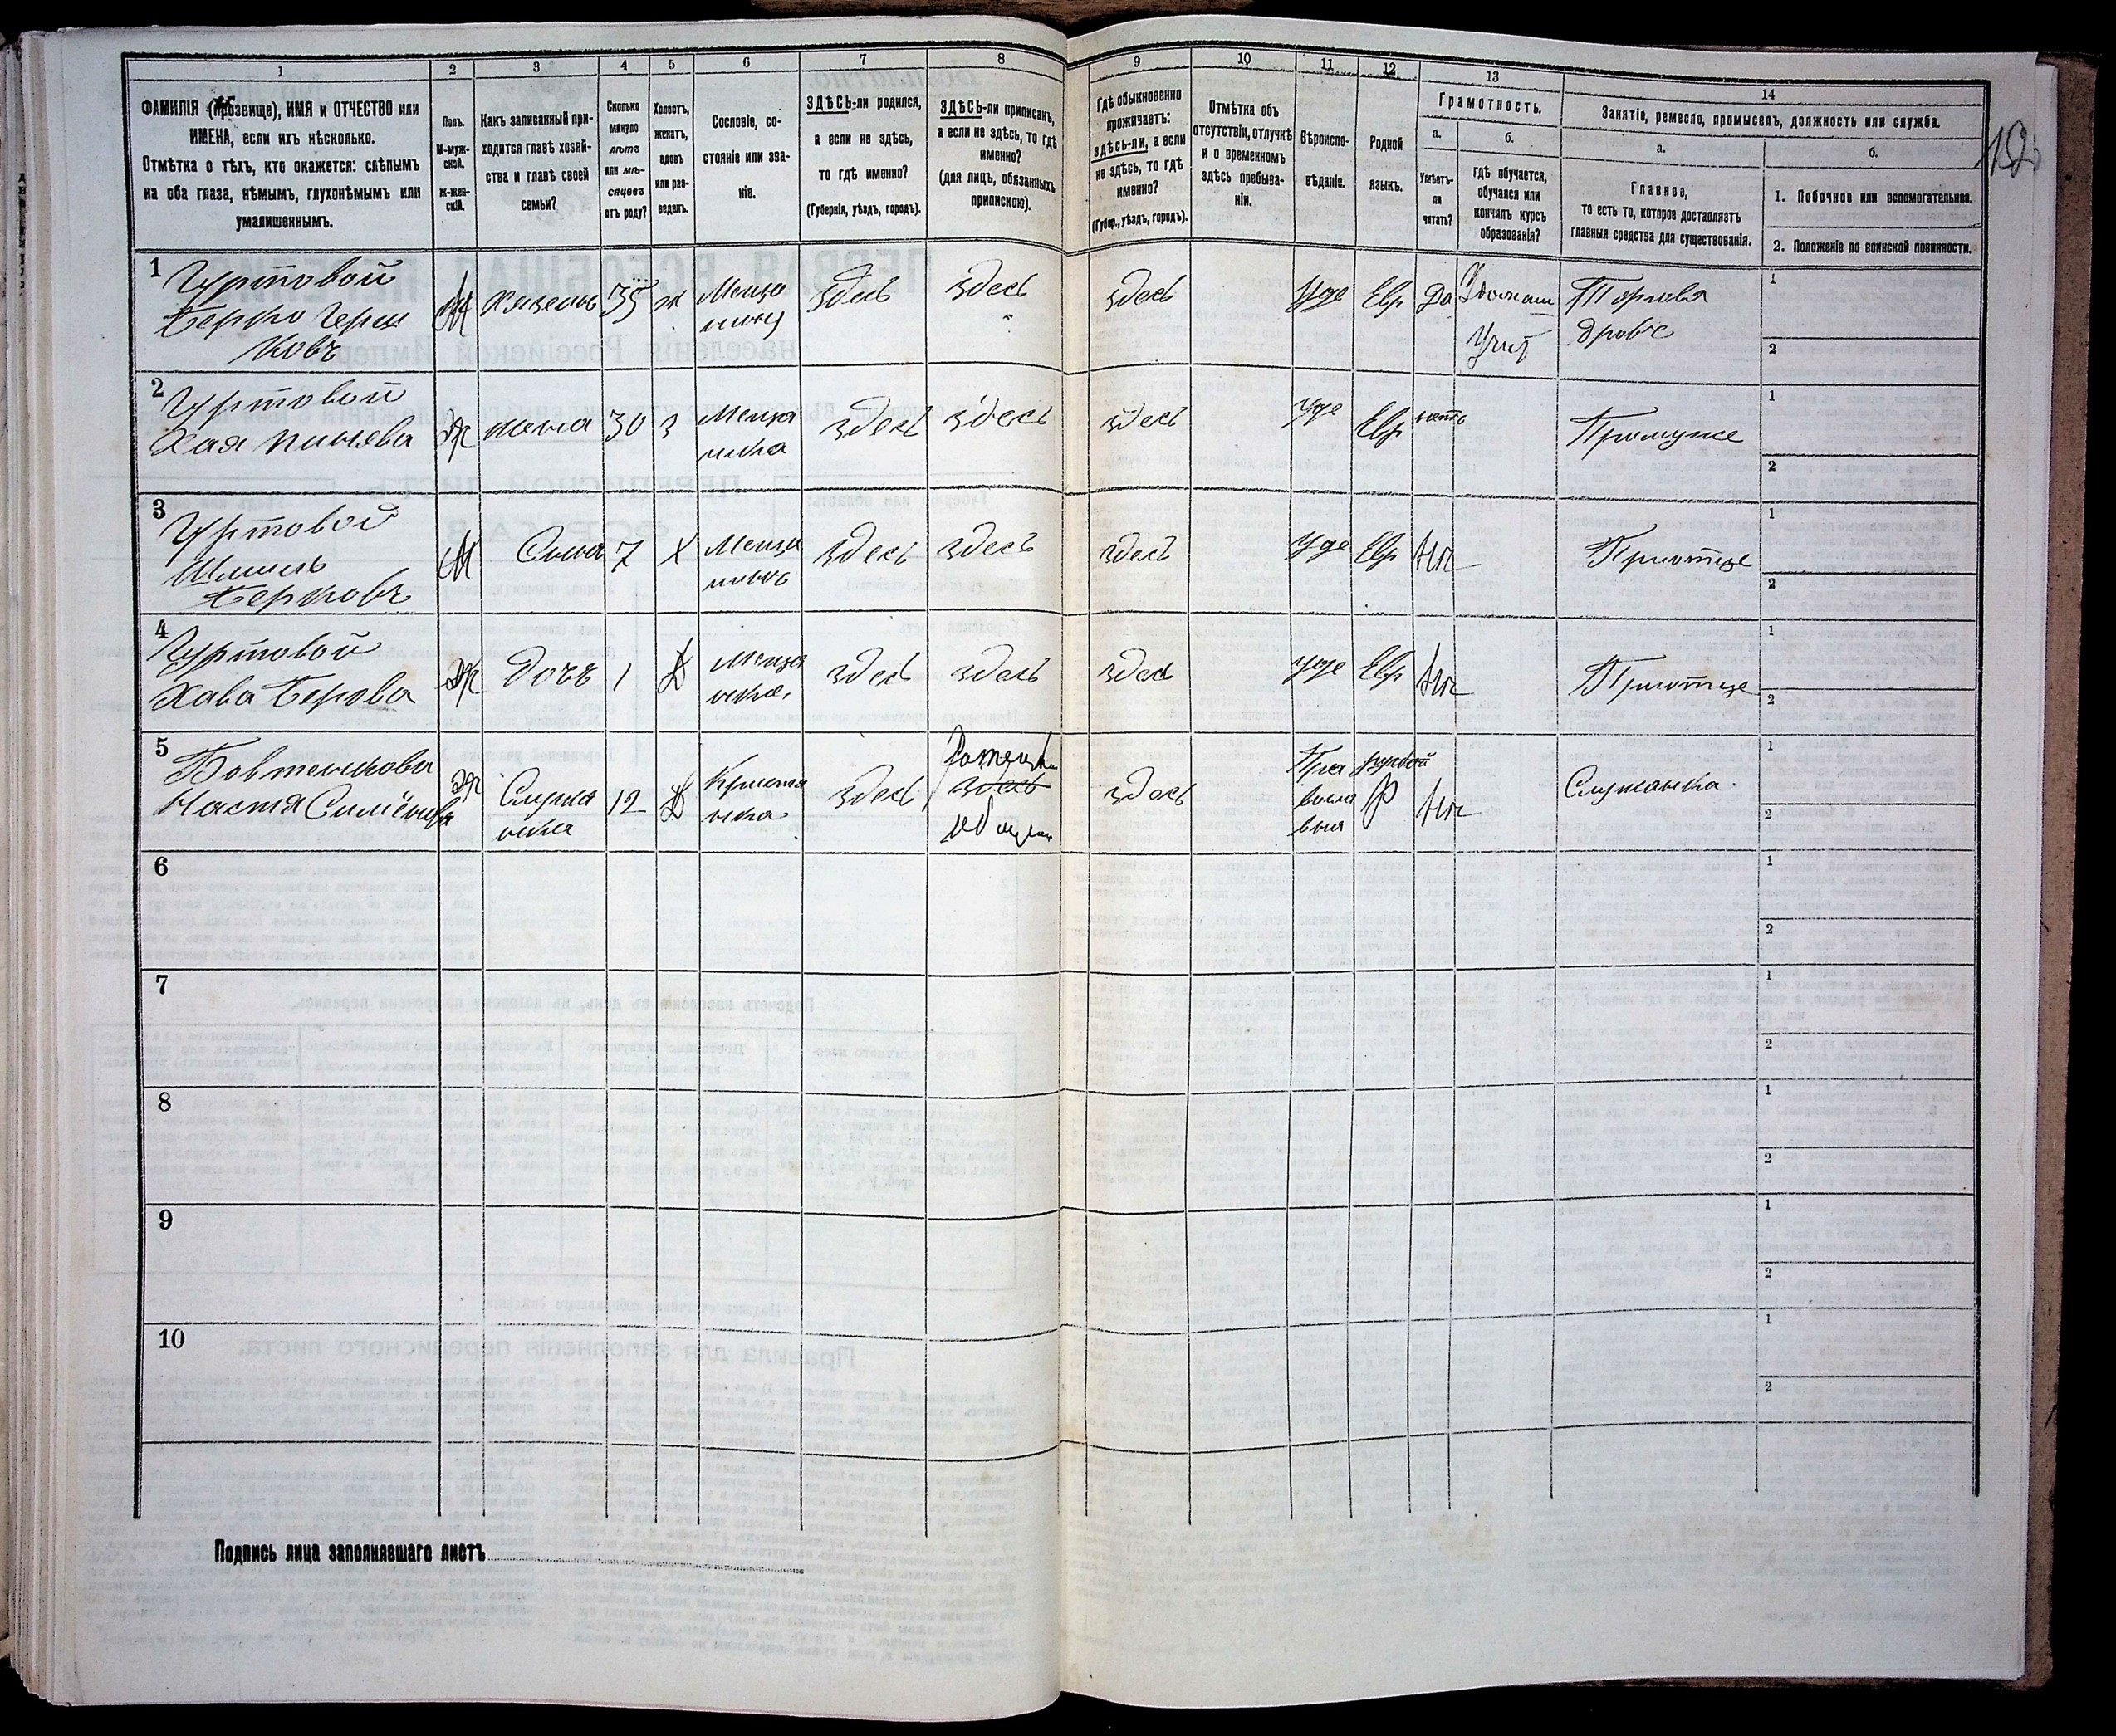 1 2 3 4 5 6 7 8 9 10 11 12 13 14
ФАМИЛІЯ (прозвище), ИМЯ и ОТЧЕСТВО или
ИМЕНА, если ихъ нѣсколько.
Отмѣтка о тѣхъ, кто окажется: слѣпымъ
на оба глаза, нѣмымъ, глухонѣмымъ или
умалишеннымъ.
Полъ.
М-муж-
ской.
Ж-жен-
скій.
Какъ записанный при-
ходится главѣ хозяй-
ства и главѣ своей
семьи?
Сколько
минуло
лѣтъ
или мѣ-
сяцевъ
отъ роду?
Холостъ,
женатъ,
вдовъ
или раз-
веденъ.
Сословіе, со-
стояніе или зва-
ніе.
ЗДѢСЬ-ли родился,
а если не здѣсь,
то гдѣ именно?
(Губернія, уѣздъ, городъ).
ЗДѢСЬ-ли приписанъ,
а если не здѣсь, то гдѣ
именно?
(для лицъ, обязанныхъ
припискою).
Гдѣ обыкновенно
проживаетъ:
здѣсь-ли, а если
не здѣсь, то гдѣ
именно?
(Губер., уѣздъ, городъ).
Отмѣтка объ
отсутствіи, отлучкѣ
и о временномъ
здѣсь пребыва-
ніи.
Вѣроиспо-
вѣданіе.
Родной
языкъ.
Грамотность.
а.
Умѣетъ-
ли
читать?
б.
гдѣ обучается,
обучался или
кончилъ курсъ
образованія?
Занятіе, ремесло, промыселъ, должность или служба.
а.
Главное,
то есть то, которое доставляетъ
главныя средства для существованія.
б.
1. Побочное или вспомогательное.
2. Положеніе по воинской повинности.
1 Гуртовой
Берко Герш
ковъ
М Хазяенъ 35 ж Меща
нинъ здесь здесь здесь Іуде Евр Да Домаш
Учит Торговля
дрове 1
2
2 Гуртовой
Хая Пинева
Ж жена 30 з Меща
нка здесь здесь здесь Іуде Евр нетъ Примуже 1
2
3 Гуртовой
Шмиль
Берковъ
М Сынъ 7 Х Меща
нинъ здесь здесь здесь Іуде Евр Нт Приотце 1
2
4 Гуртовой
Хава Беркова
Ж дочь 1 Д Меща
нка здесь здесь здесь Іуде Евр Нт Приотце 1
2
5 Бовтенкова
Настя Симёнова
Ж Служа
нка 12 Д Кристя
нка здесь здесь здесь Пра
восла
вная Р Нт Служанка. 1
2
6 1
2
7 1
2
8 1
2
9 1
2
10 1
2
Подпись лица заполнявшаго листъ